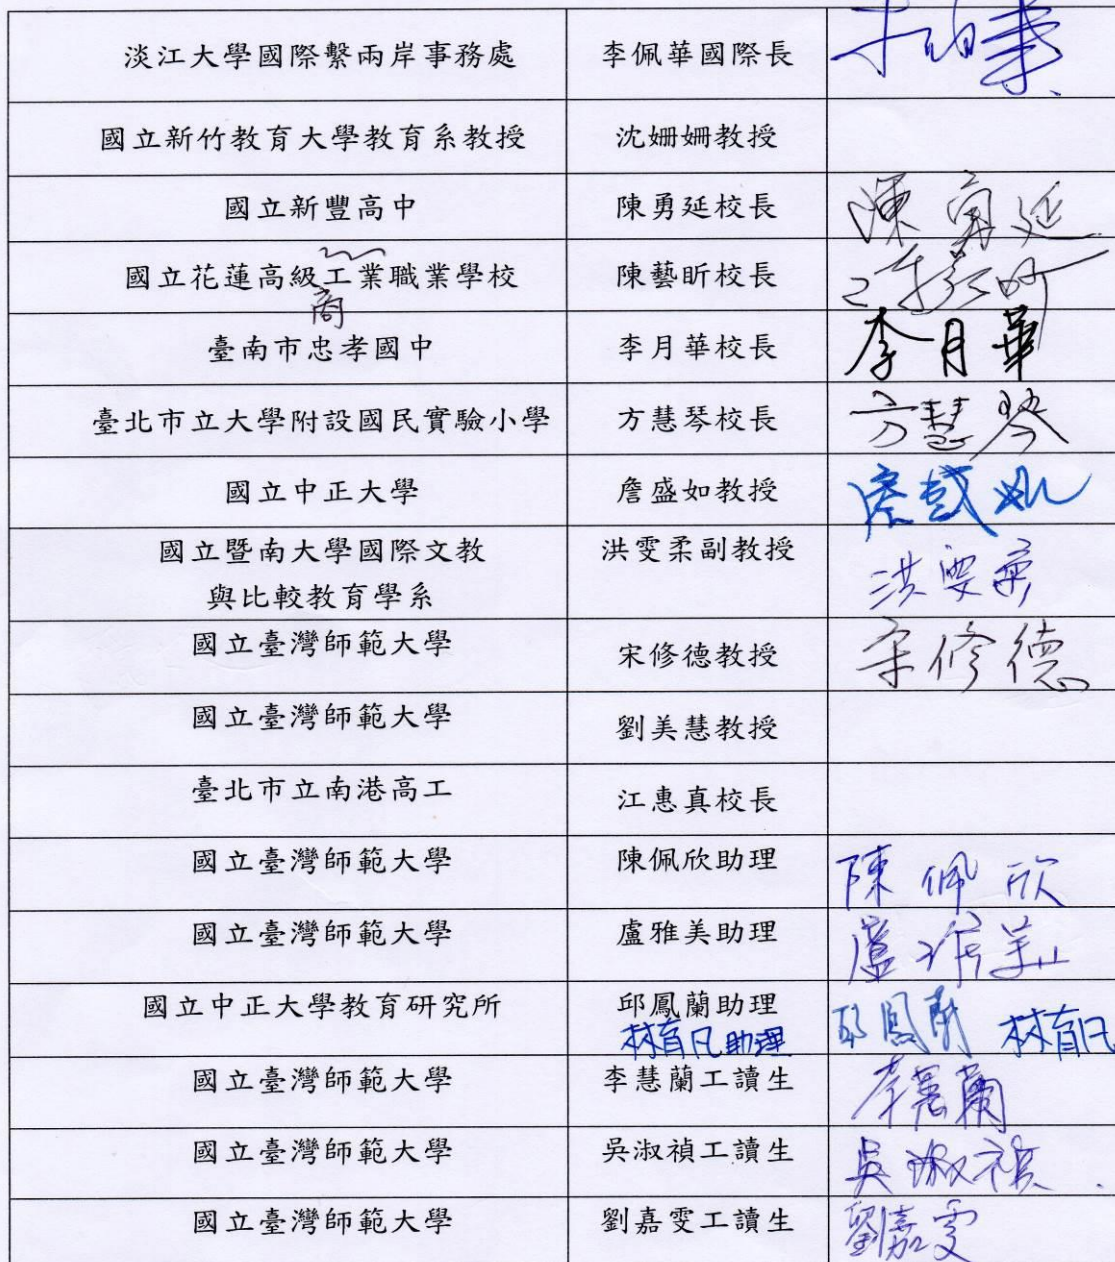 淡江大學國際繫兩岸事務處 李佩華國際長
國立新竹教育大學教育系教授 沈姍姍教授
國立新豐高中 陳勇延校長 陳勇延
國立花蓮高級工業職業學校 陳藝昕校長
商
臺南市忠孝國中 李月華校長 李月華
臺北市立大學附設國民實驗小學 方慧琴校長 方慧琴
國立中正大學 詹盛如教授 詹盛如
國立暨南大學國際文教 洪雯柔副教授 洪雯柔
與比較教育學系
國立臺灣師範大學 宋修德教授 宋修德
國立臺灣師範大學 劉美慧教授
臺北市立南港高工 江惠真校長
國立臺灣師範大學 陳佩欣助理 陳佩欣
國立臺灣師範大學 盧雅美助理 盧雅美
國立中正大學教育研究所 邱鳳蘭助理 邱鳳蘭 林育凡
林育凡助理
國立臺灣師範大學 李慧蘭工讀生 李慧蘭
國立臺灣師範大學 吳淑禎工讀生 吳淑禎
國立臺灣師範大學 劉嘉雯工讀生 劉嘉雯